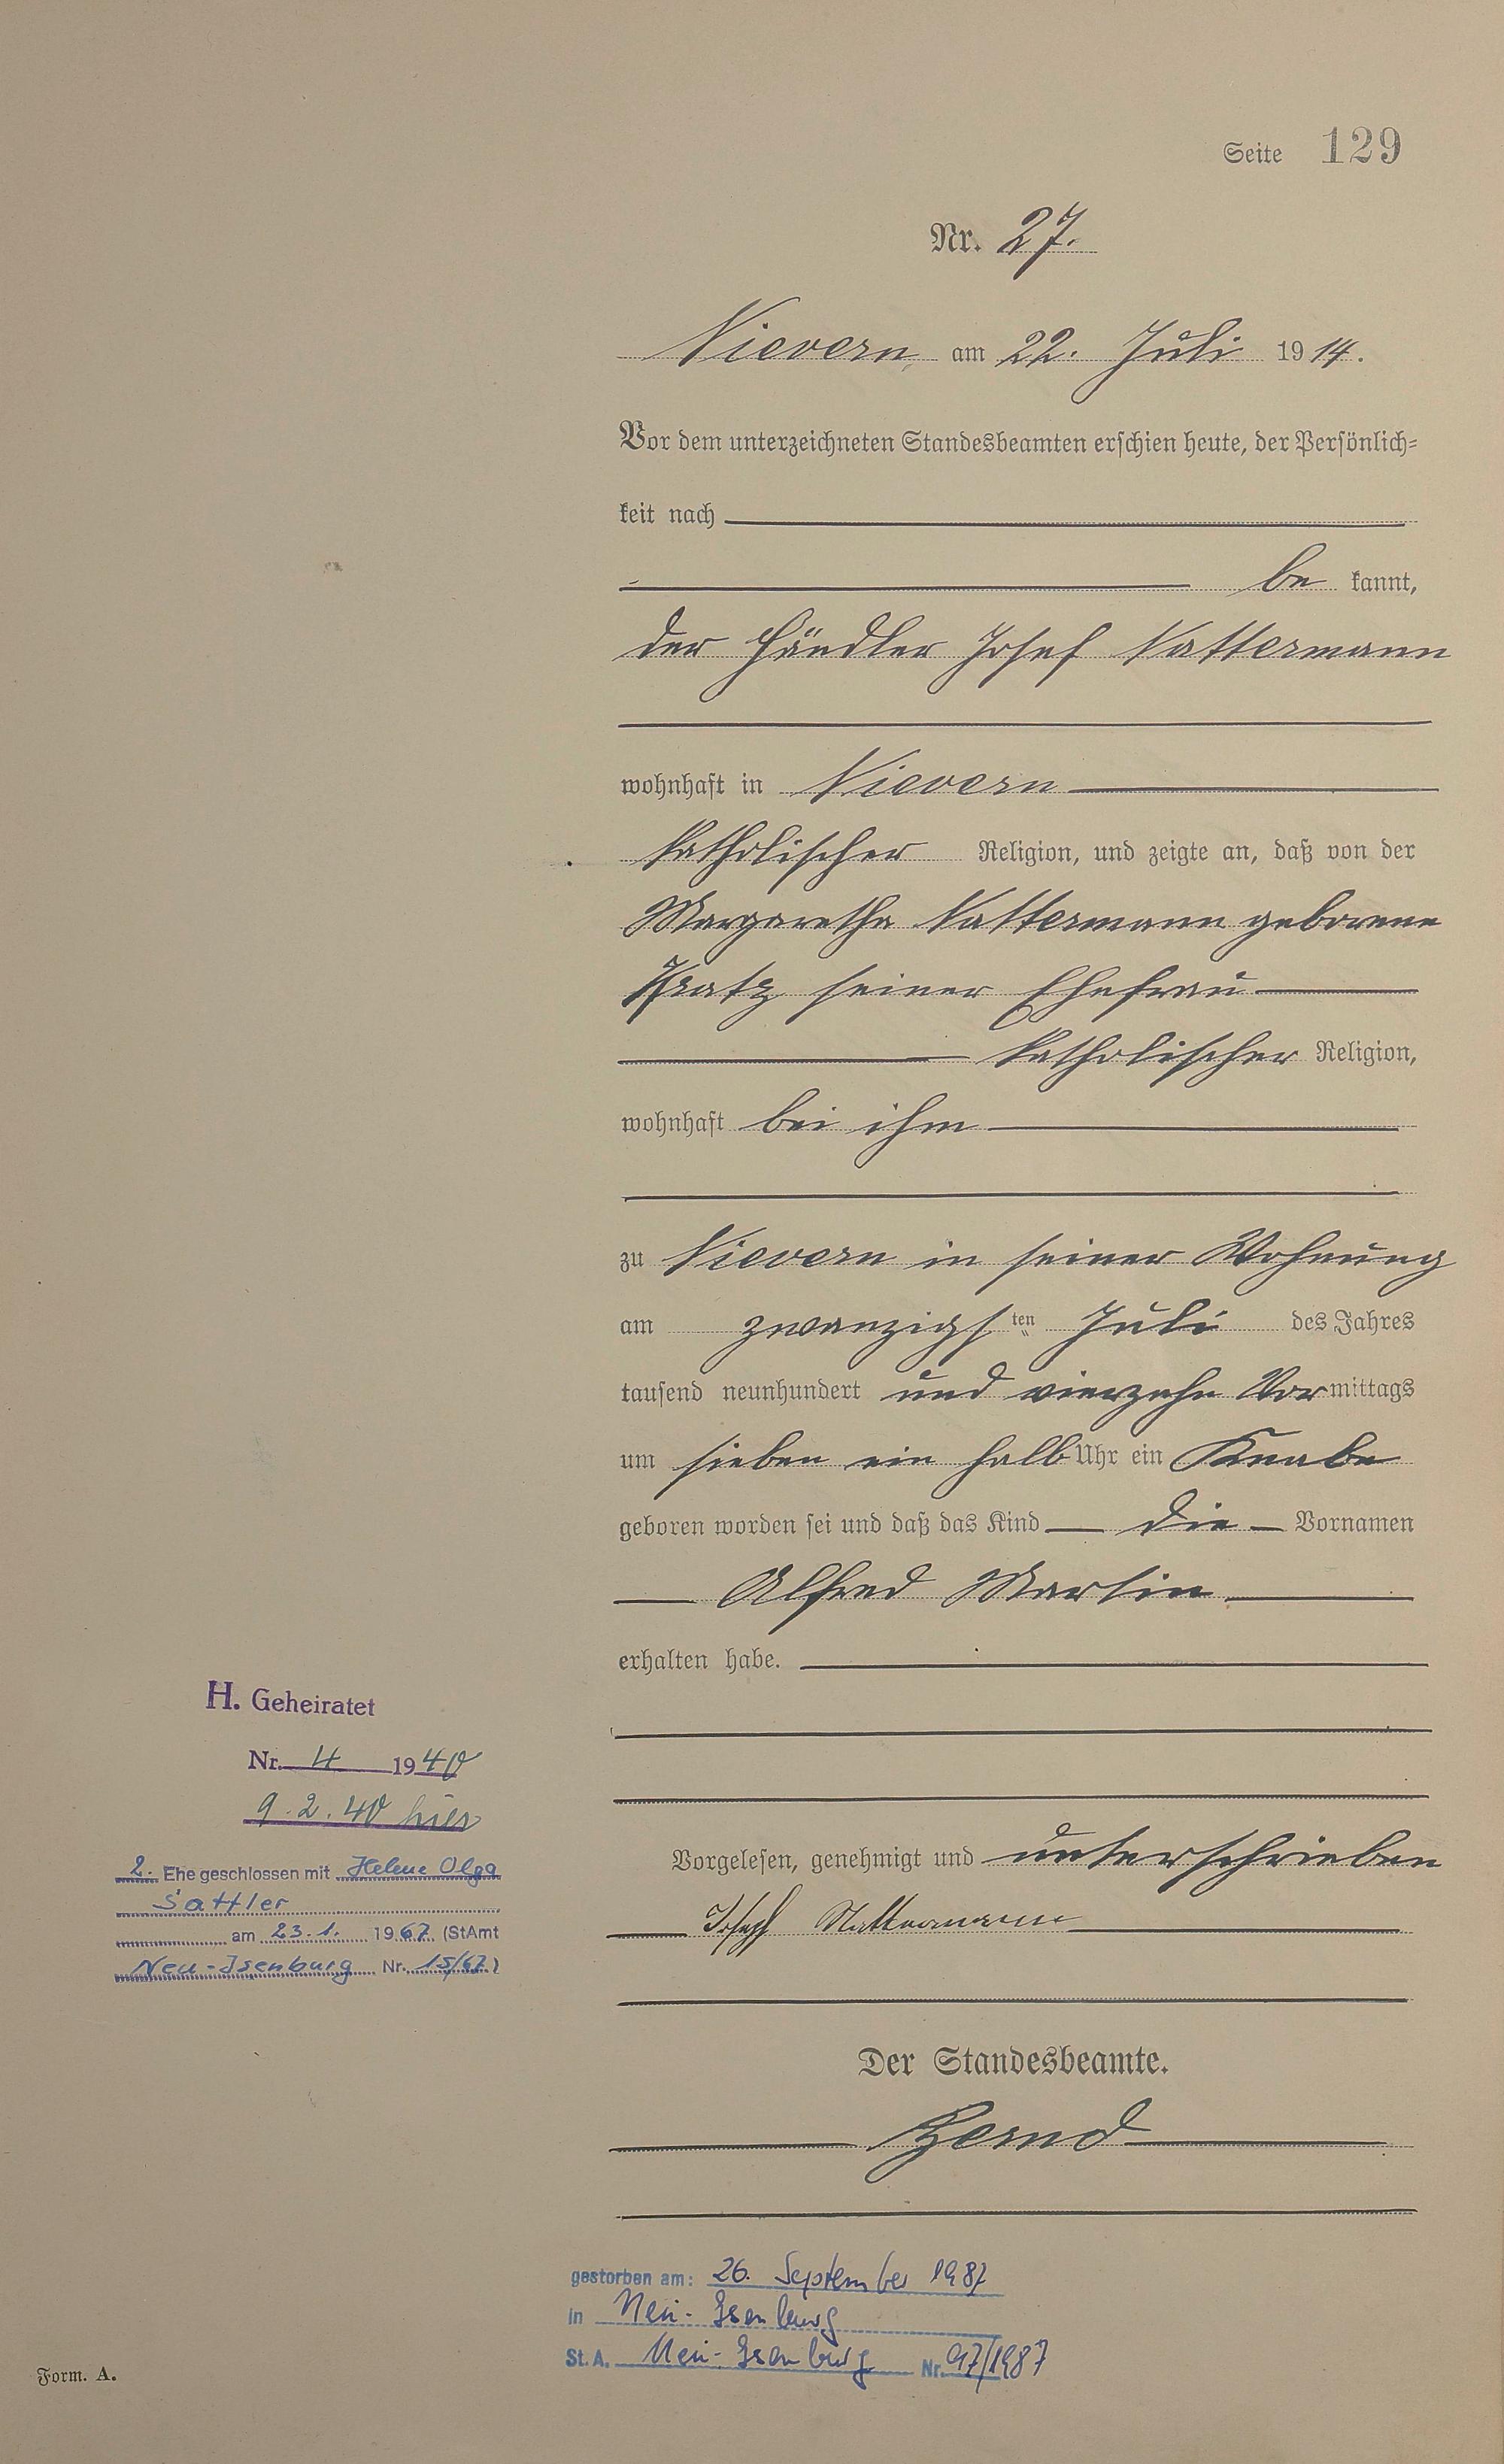 Seite 129
Nr. 27.
Nievern, am 22. Juli 1914.
Vor dem unterzeichneten Standesbeamten erschien heute, der Persönlich-
keit nach
be kannt,
der Händler Josef Nattermann
wohnhaft in Nievern
katholischer Religion, und zeigte an, daß von der
Margaretha Nattermann geborene
Kratz seiner Ehefrau
katholischer Religion,
wohnhaft bei ihm
zu Nievern in seiner Wohnung
am zwanzigsten Juli des Jahres
tausend neunhundert und vierzehn Vormittags
um sieben ein halb Uhr ein Knabe
geboren worden sei und daß das Kind die Vornamen
Alfred Martin
erhalten habe.
H. Geheiratet
Nr. 4 1940
9.2.40 hier
2. Ehe geschlossen mit Helene Olga
Sattler
am 23.1. 1967 (StAmt
Neu-Isenburg Nr. 15/67)
Vorgelesen, genehmigt und unterschrieben
Joseph Nattermann
Der Standesbeamte.
gestorben am: 26. September 1987
in Neu-Isenburg
St. A. Neu-Isenburg Nr. 97/1987
Form. A.